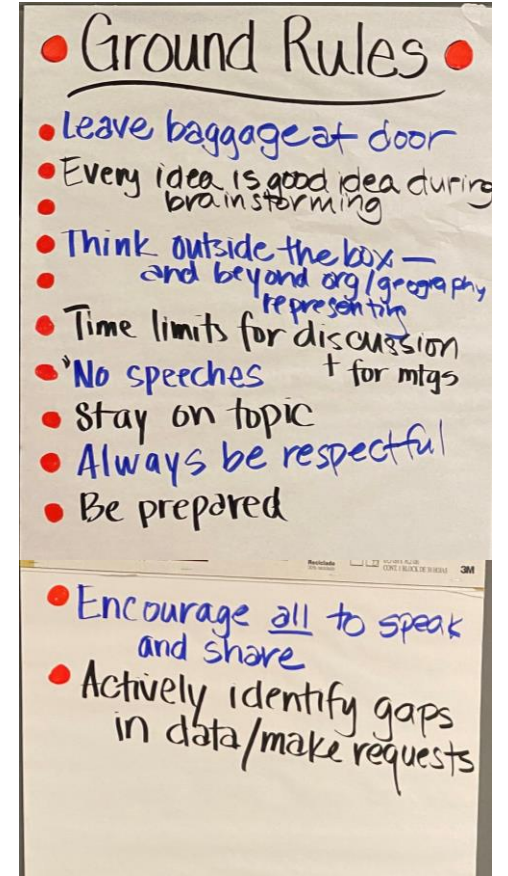 Ground Rules
• Leave baggage at door
• Every idea is good idea during
• brainstorming
• Think outside the box —
• and beyond org/geography
representing
• Time limits for discussion
+ for mtgs
• No speeches
• Stay on topic
• Always be respectful
• Be prepared
Reciclado
CONT. 1 BLOCK DE 30 HOJAS
3M
• Encourage all to speak
and share
• Actively identify gaps
in data/make requests